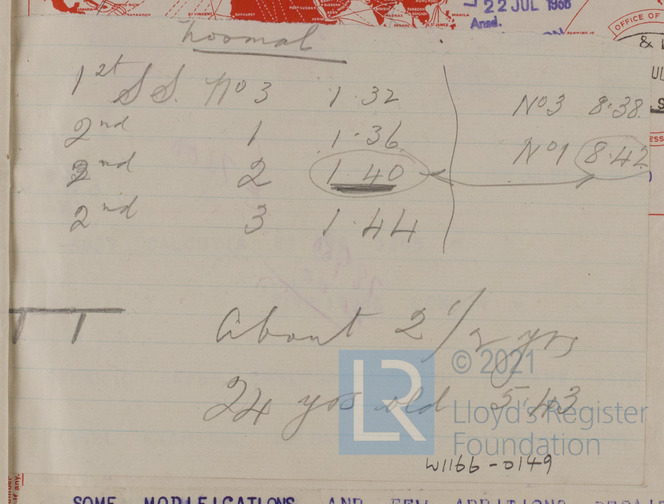 22 JUL 1966
Ansd.
OFFICE OF
&
Normal
1st S.S. No 3 1.32
2nd 1 1.36
2nd 2 1.40
2nd 3 1.44
No3 8.38
No1 8.42
About 2 1/2 yrs
24 yrs old 5.43
LR
© 2021
Lloyd's Register
Foundation
W1166-0149
SOME MODIFICATIONS AND FEW ADDITIONS